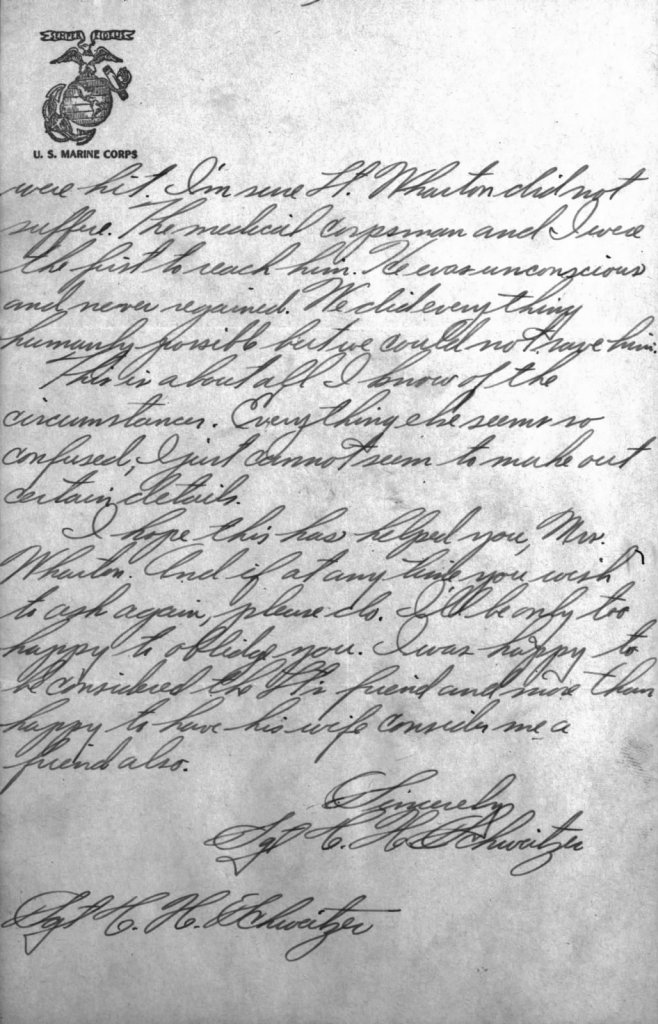 SEMPER FIDELIS
U. S. MARINE CORPS
were hit. I'm sure Lt. Wharton did not
suffer. The medical corpsman and I were
the first to reach him. He was unconscious
and never regained. We did everything
humanly possible but we could not save him.
This is about all I know of the
circumstances. Everything else seems so
confused, I just cannot seem to make out
certain details.
I hope this has helped you, Mrs.
Wharton. And if at any time you wish
to ask again, please do. I'll be only too
happy to oblidge you. I was happy to
be considered the Lt's friend and more than
happy to have his wife consider me a
friend also.
Sincerely
Sgt C. H. Schweitzer
Sgt C. H. Schweitzer